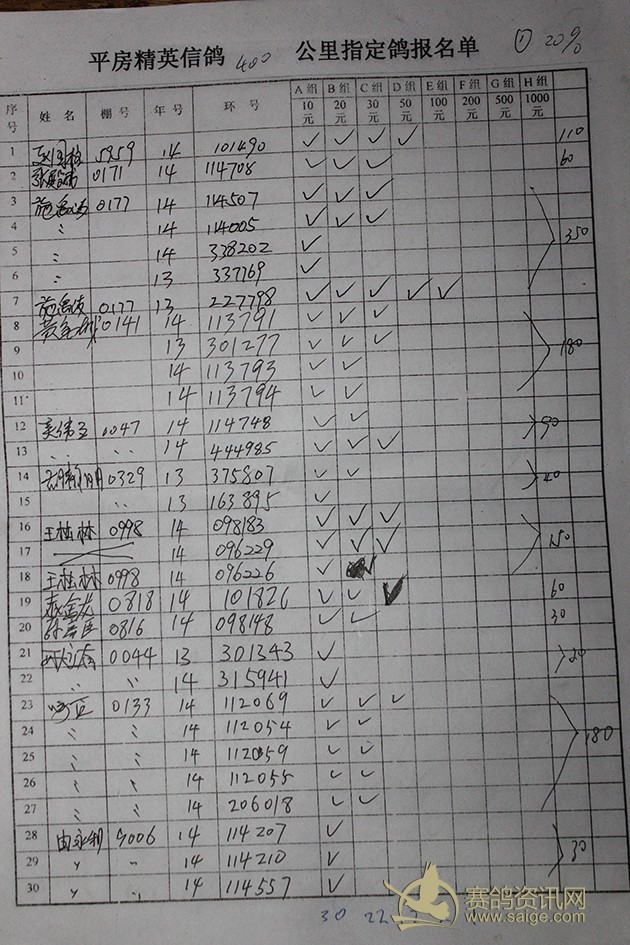 平房精英信鸽 400 公里指定鸽报名单 ① 20%
序号 姓名 棚号 年号 环号 A组 10元 B组 20元 C组 30元 D组 50元 E组 100元 F组 200元 G组 500元 H组 1000元
1 5959 14 101490 ✓ ✓ ✓ ✓ 110
2 0171 14 114708 ✓ ✓ ✓ 60
3 0177 14 114507 ✓ ✓ ✓
4 〃 14 114005 ✓ ✓ ✓
5 〃 14 338202 ✓ 350
6 〃 13 337769 ✓
7 0177 13 227798 ✓ ✓ ✓ ✓ ✓
8 0141 14 113791 ✓ ✓ ✓
9 13 301277 ✓ ✓ ✓ 180
10 14 113793 ✓ ✓
11 14 113794 ✓ ✓
12 0047 14 114748 ✓ ✓ 90
13 〃 〃 14 444985 ✓ ✓ ✓
14 0329 13 375807 ✓ ✓ 40
15 〃 13 163895 ✓
16 王桂林 0998 14 098183 ✓ ✓ ✓
17 14 096229 ✓ ✓ ✓ 150
18 王桂林 0998 14 096226 ✓
19 0818 14 101826 ✓ ✓ ✓ 60
20 0816 14 098148 ✓ ✓ 30
21 0044 13 301343 ✓ 20
22 〃 〃 14 315941 ✓
23 0133 14 112069 ✓ ✓ ✓
24 〃 〃 14 112054 ✓ ✓ 180
25 〃 〃 14 112059 ✓ ✓
26 〃 〃 14 112055 ✓ ✓
27 〃 〃 14 206018 ✓ ✓
28 由永利 9006 14 114207 ✓
29 〃 〃 14 114210 ✓ 30
30 〃 〃 14 114557 ✓
30 22
赛鸽资讯网
www.saige.com